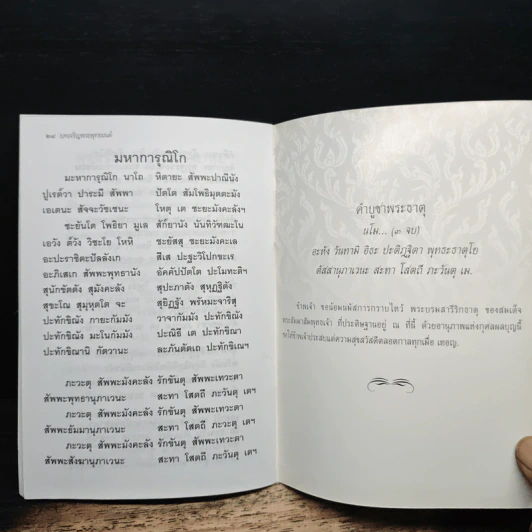 ๒๔ บทเจริญพระพุทธมนต์
มหาการุณิโก
มะหาการุณิโก นาโถ หิตายะ สัพพะปาณินัง
ปูเรต๎วา ปาระมี สัพพา ปัตโต สัมโพธิมุตตะมัง
เอเตนะ สัจจะวัชเชนะ โหตุ เต ชะยะมังคะลังฯ
ชะยันโต โพธิยา มูเล สักยานัง นันทิวัฑฒะโน
เอวัง ต๎วัง วิชะโย โหหิ ชะยัสสุ ชะยะมังคะเล
อะปะราชิตะปัลลังเก สีเส ปะฐะวิโปกขะเร
อะภิเสเก สัพพะพุทธานัง อัคคัปปัตโต ปะโมทะติฯ
สุนักขัตตัง สุมังคะลัง สุปะภาตัง สุหุฏฐิตัง
สุขะโณ สุมุหุตโต จะ สุยิฏฐัง พรัหมะจาริสุ
ปะทักขิณัง กายะกัมมัง วาจากัมมัง ปะทักขิณัง
ปะทักขิณัง มะโนกัมมัง ปะณิธี เต ปะทักขิณา
ปะทักขิณานิ กัต๎วานะ ละภันตัตเถ ปะทักขิเณฯ
ภะวะตุ สัพพะมังคะลัง รักขันตุ สัพพะเทวะตา
สัพพะพุทธานุภาเวนะ สะทา โสตถี ภะวันตุ เตฯ
ภะวะตุ สัพพะมังคะลัง รักขันตุ สัพพะเทวะตา
สัพพะธัมมานุภาเวนะ สะทา โสตถี ภะวะตุ เตฯ
ภะวะตุ สัพพะมังคะลัง รักขันตุ สัพพะเทวะตา
สัพพะสังฆานุภาเวนะ สะทา โสตถี ภะวันตุ เตฯ
คำบูชาพระธาตุ
นโม... (๓ จบ)
อะหัง วันทามิ อิธะ ปะติฏฐิตา พุทธะธาตุโย
ตัสสานุภาเวนะ สะทา โสตถี ภะวันตุ เม.
ข้าพเจ้า ขอน้อมนมัสการกราบไหว้ พระบรมสารีริกธาตุ ของสมเด็จ
พระสัมมาสัมพุทธเจ้า ที่ประดิษฐานอยู่ ณ ที่นี้ ด้วยอานุภาพแห่งกุศลผลบุญนี้
ขอให้ข้าพเจ้าประสบแต่ความสุขสวัสดีตลอดกาลทุกเมื่อ เทอญ.